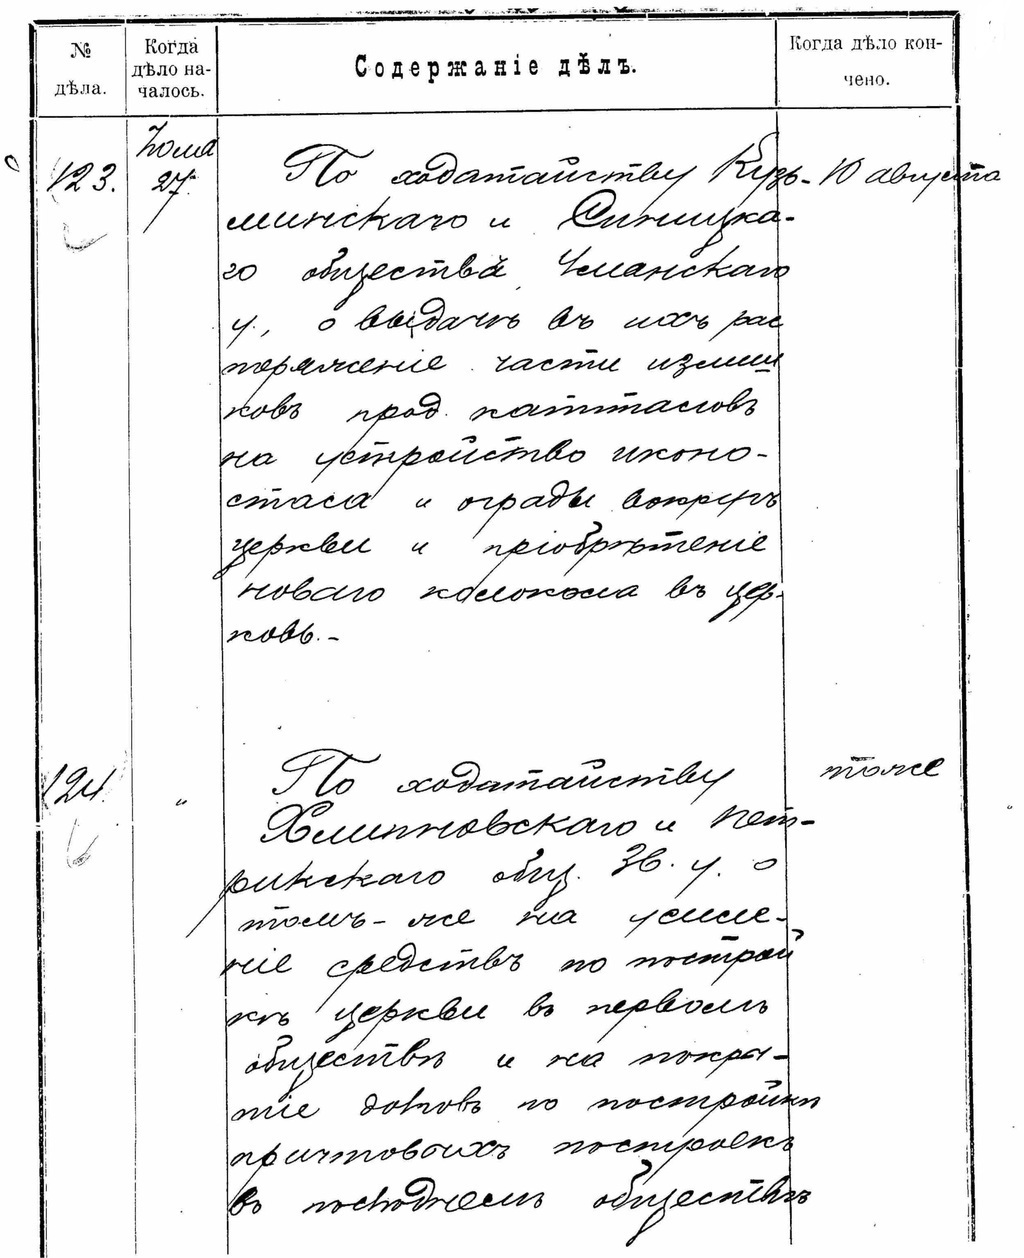 №
дѣла.
Когда
дѣло на-
чалось.
Содержаніе дѣлъ.
Когда дѣло кон-
чено.
123.
Іюля
27.
По ходатайству Кузь-
минскаго и Синицка-
го общества Усманскаго
у., о выдачѣ въ ихъ рас
поряженіе части излиш
ковъ прод. капиталовъ
на устройство иконо-
стаса и ограды вокругъ
церкви и пріобрѣтеніе
новаго колокола въ цер-
ковь.-
10 августа
124.
"
По ходатайству
Хлыповскаго и Пет-
ровскаго общ. Зв. у. о
томъ-же на усиле-
ніе средствъ по построй
кѣ церкви въ первомъ
обществѣ и на покры-
тіе долговъ по постройкѣ
причтовыхъ построекъ
въ послѣднемъ обществѣ
тоже